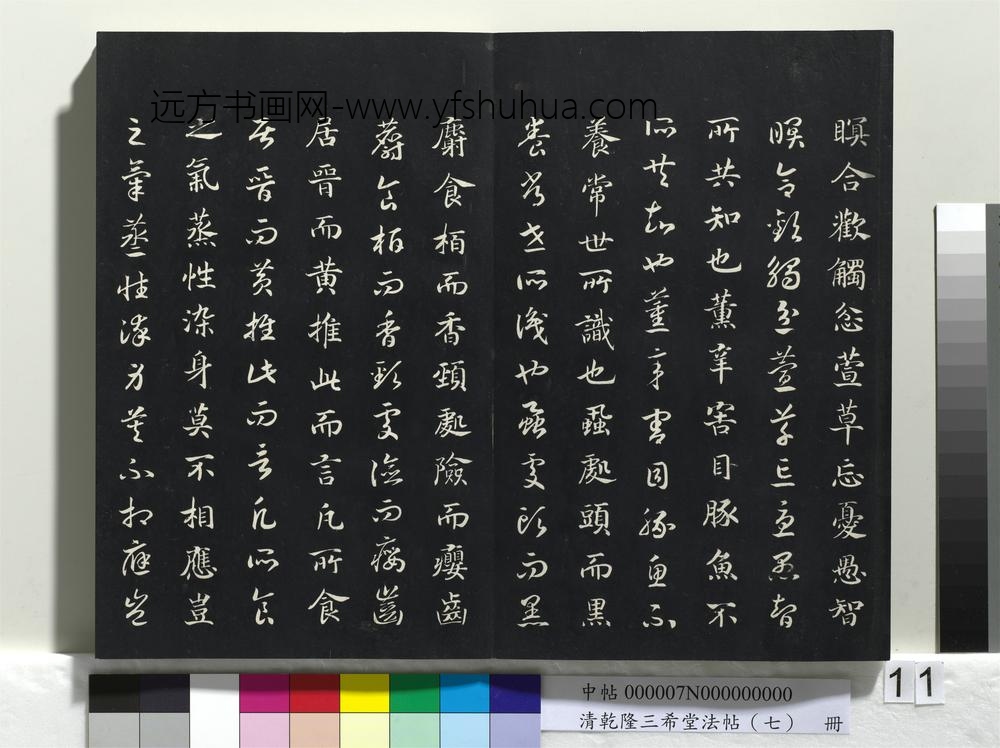 远方书画网-www.yfshuhua.com
瞑合歡觸忿萱草忘憂愚智
瞑合歡觸忿萱草忘憂愚智
所共知也薰辛害目豚魚不
所共知也薰辛害目豚魚不
養常世所識也蝨處頭而黑
養常世所識也蝨處頭而黑
麝食栢而香頸處險而癭齒
麝食栢而香頸處險而癭齒
居晉而黃推此而言凡所食
居晉而黃推此而言凡所食
之氣蒸性染身莫不相應豈
之氣蒸性染身莫不相應豈
11
中帖 000007N000000000
清乾隆三希堂法帖（七） 冊